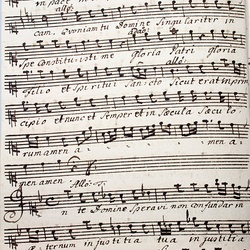 in pace in
allo:
cam. Quoniam tu Domine Singulariter in
ado:
Spe Constituisti me gloria Patri gloria
allo:
Filio et Spiritui Sancto Sicut erat in prin
cipio et nunc et Semper et in Sæcula Sæculo
rum amen a. men a.
men amen
Allo:
n te Domine Speravi non confundar in
æternum in justitia tua in justitiæ